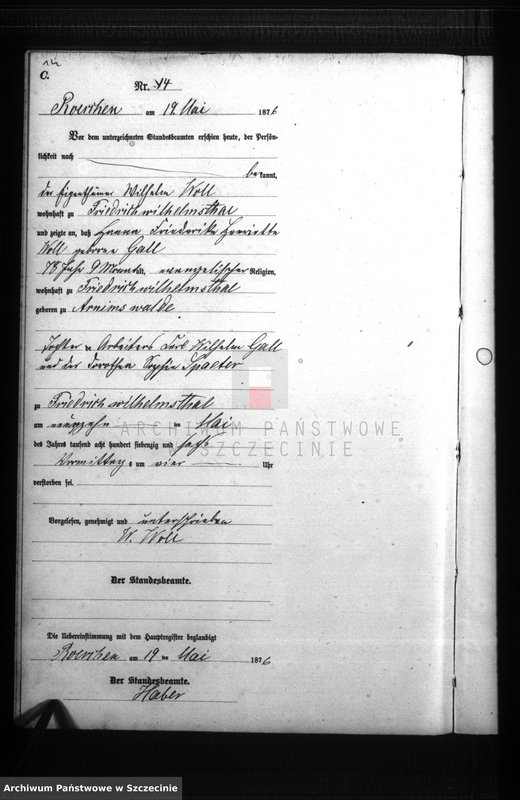 14
C.
Nr. 14
Roerchen am 19 Mai 1876
Vor dem unterzeichneten Standesbeamten erschien heute, der Persön-
lichkeit nach
bekannt,
der Eigenthümer Wilhelm Woll
wohnhaft zu Friedrichwilhelmsthal
und zeigte an, daß Hanna Friederike Henriette
Woll geborene Gall
78 Jahr 9 Monat alt, evangelischer Religion,
wohnhaft zu Friedrichwilhelmsthal
geboren zu Arnimswalde
Tochter Arbeiters Carl Wilhelm Gall
und der Dorothea Sophie Spaeter
zu Friedrichwilhelmsthal
am neunzehn ten Mai
des Jahres tausend acht hundert siebenzig und sechs
Vormittag s um vier Uhr
verstorben sei.
Vorgelesen, genehmigt und unterschrieben
W. Woll
Der Standesbeamte.
Die Uebereinstimmung mit dem Hauptregister beglaubigt
Roerchen am 19 ten Mai 1876
Der Standesbeamte.
Haber
ARCHIWUM PAŃSTWOWE
W SZCZECINIE
Archiwum Państwowe w Szczecinie